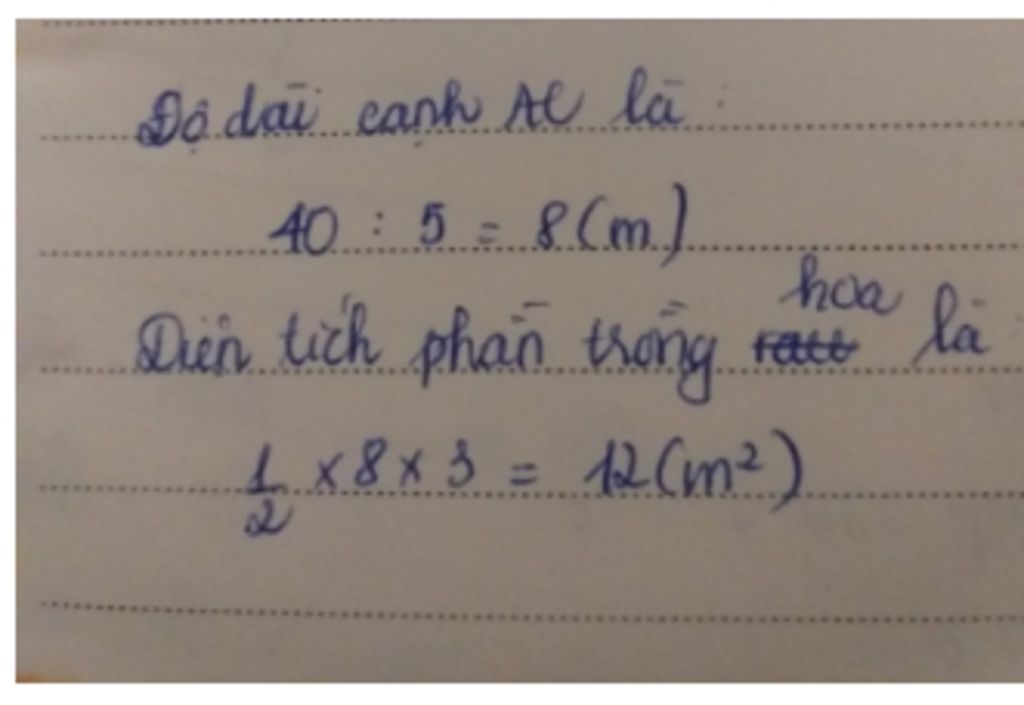 Độ dài cạnh AC là :
40 : 5 = 8 (m)
Diện tích phần trồng hoa là
1/2 × 8 × 3 = 12 (m²)